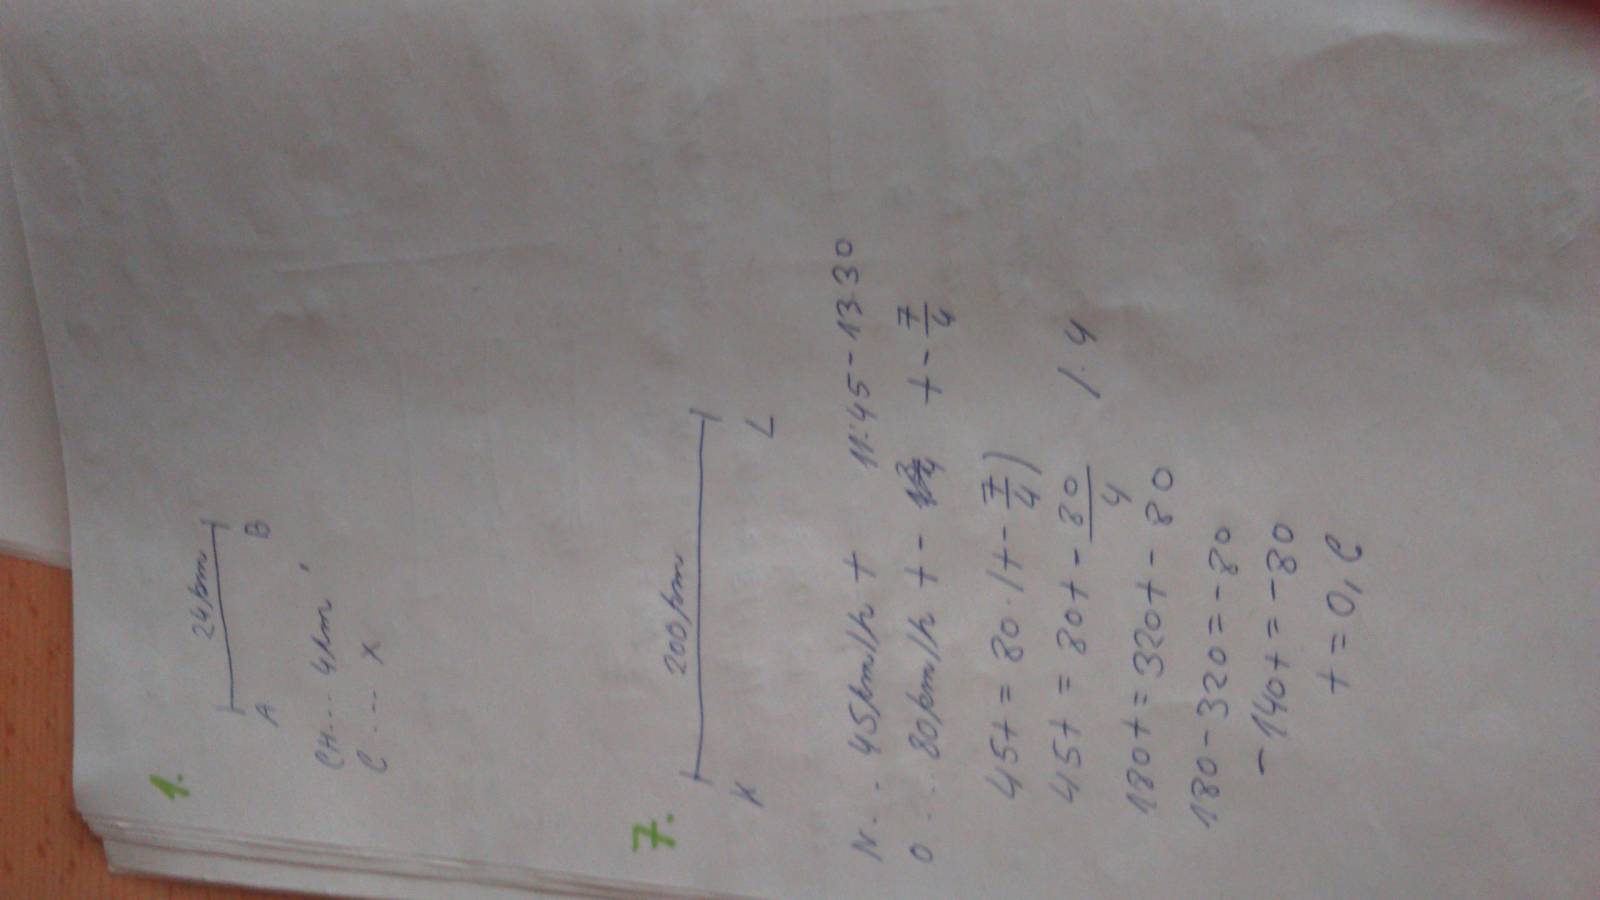 1.
24km
A B
CH.... 4km
C .... x
7.
200km
K L
N... 45km/h t 11:45-13:30
O ... 80km/h t - t - 7/4
45t = 80·(t - 7/4)
45t = 80t - 80/4 /·4
180t = 320t - 80
180-320=-80
-140t=-80
t=0,